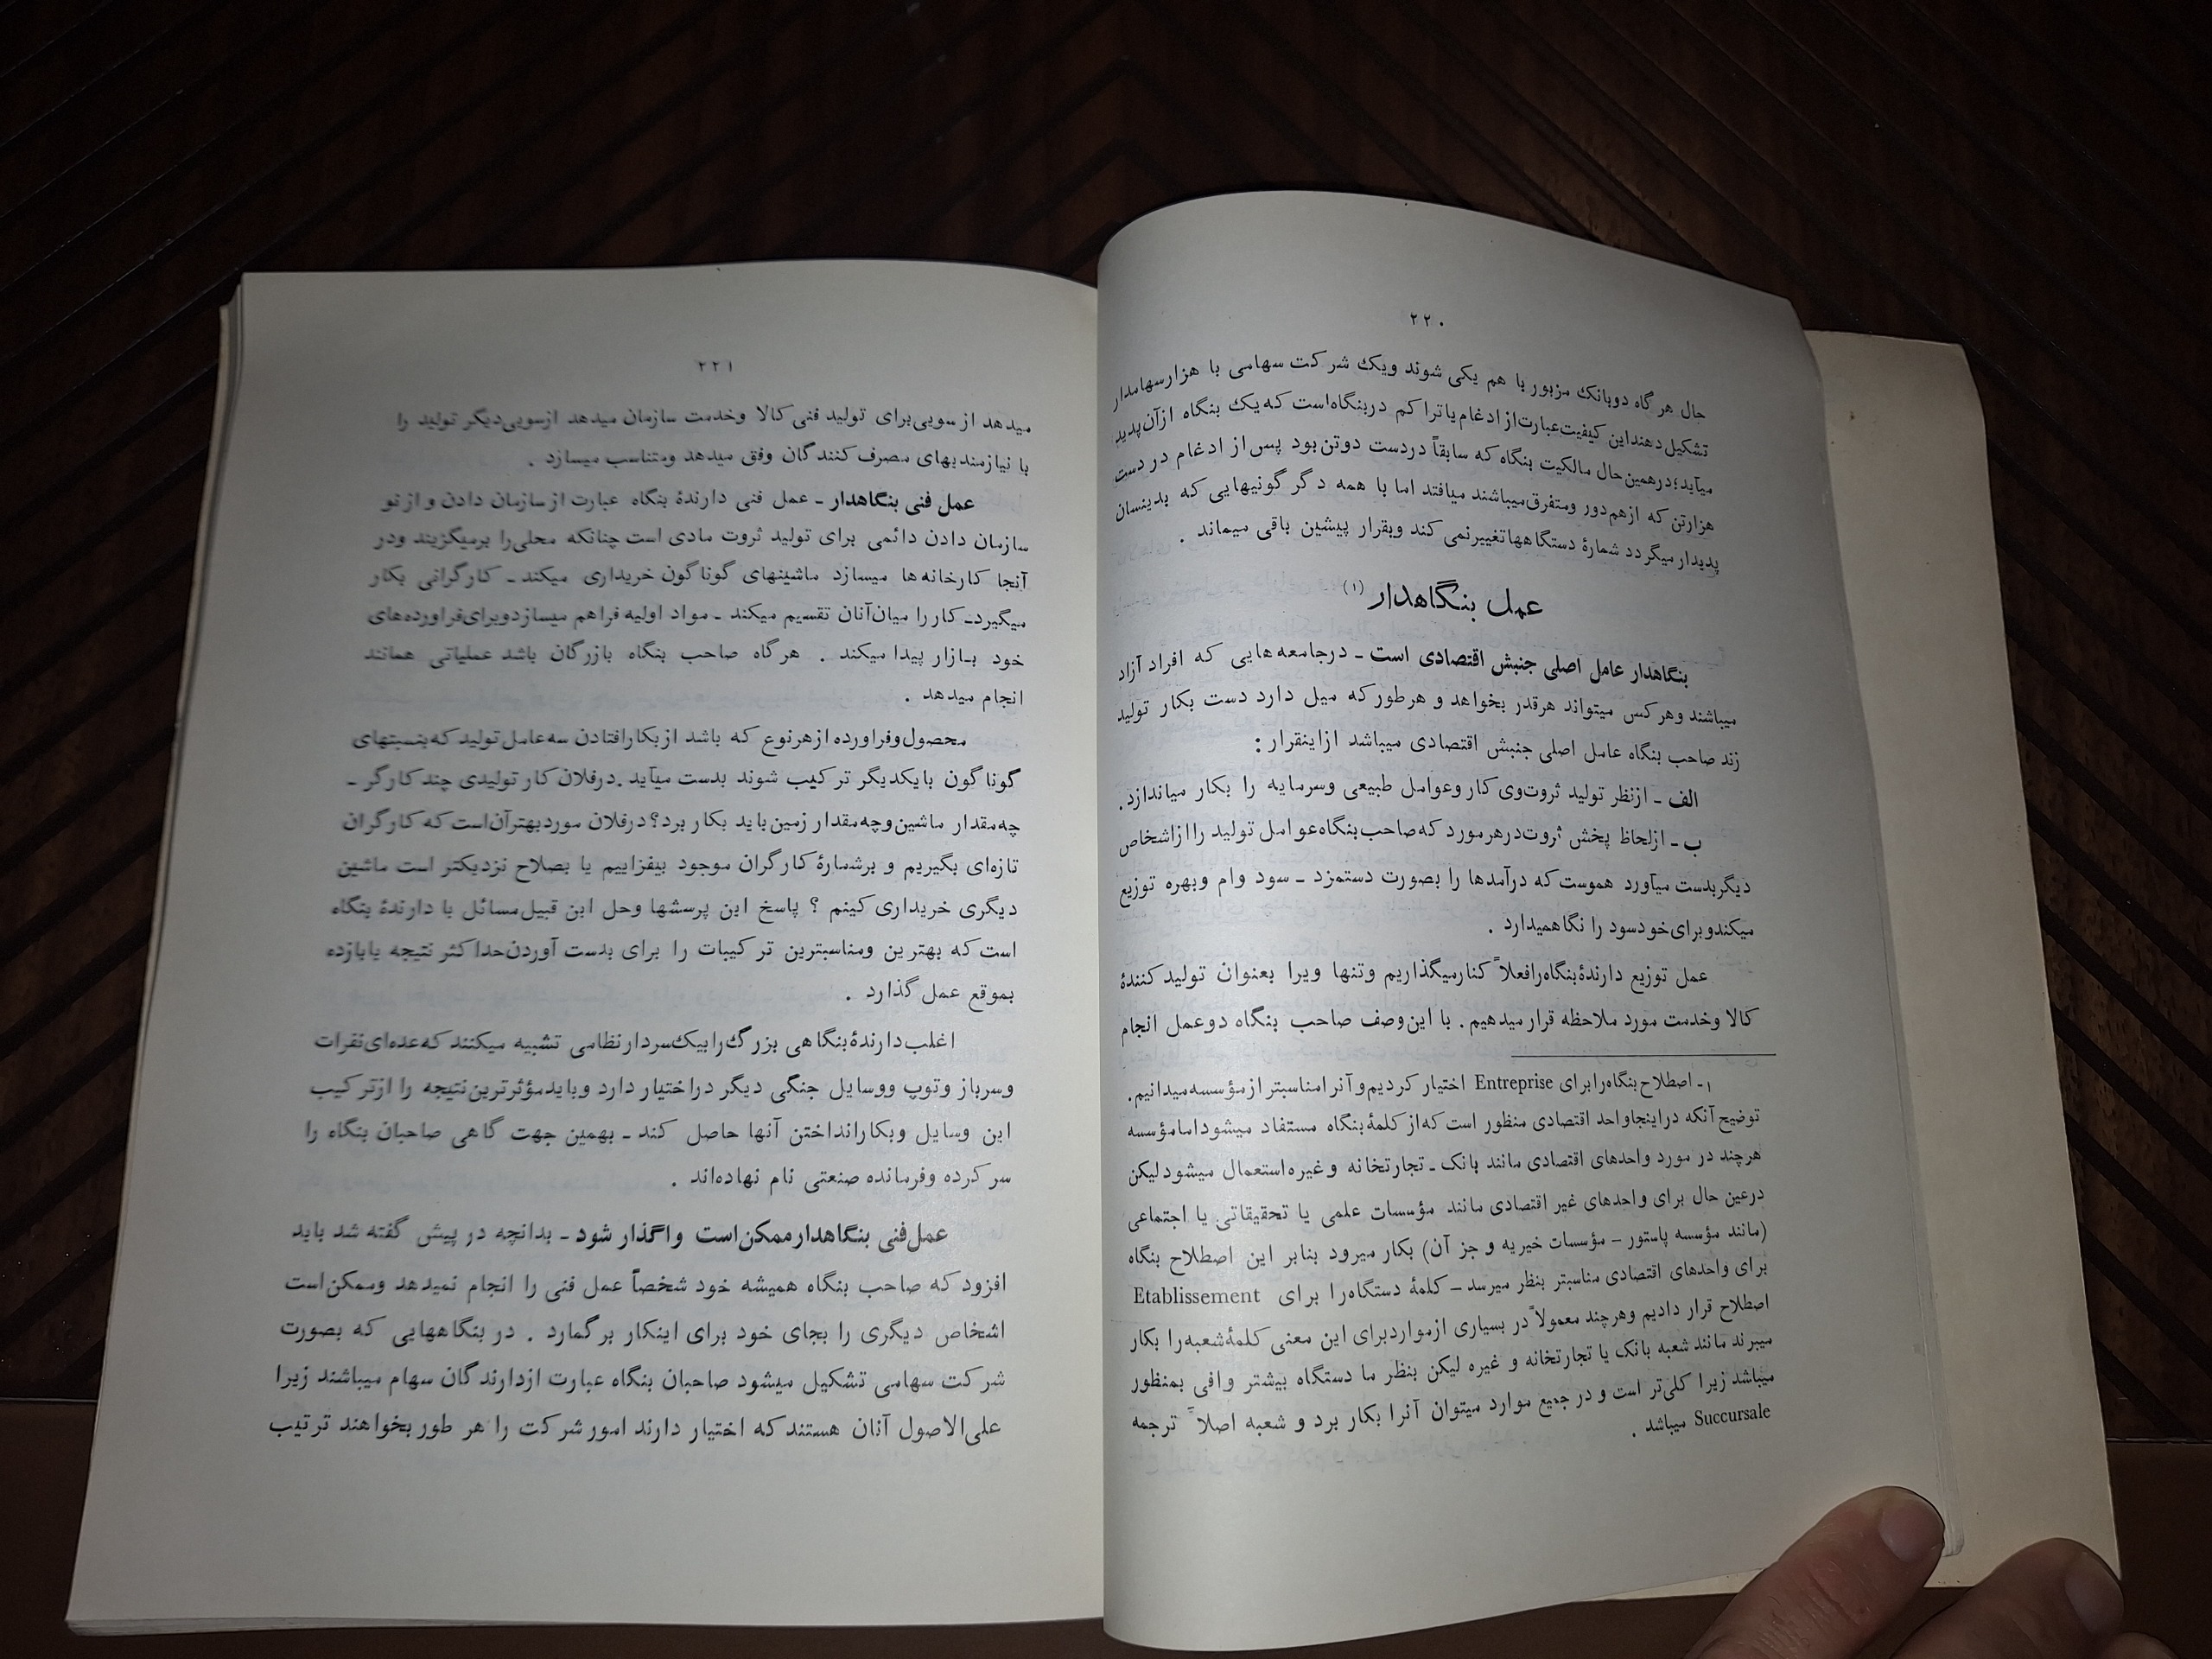 ۲۲۰
حال هرگاه دوبانک مزبور با هم یکی شوند ویک شرکت سهامی با هزارسهامدار
تشکیل دهند این کیفیت عبارت از ادغام یا تراکم دربنگاه است که یک بنگاه ازآن پدید
میآید؛ درهمین حال مالکیت بنگاه که سابقاً دردست دوتن بود پس از ادغام در دست
هزارتن که ازهم دور ومتفرق میباشند میافتد اما با همه دگرگونیهایی که بدینسان
پدیدار میگردد شمارهٔ دستگاهها تغییرنمی کند وبقرار پیشین باقی میماند .
عمل بنگاهدار (۱)
بنگاهدار عامل اصلی جنبش اقتصادی است ـ درجامعه هایی که افراد آزاد
میباشند وهرکس میتواند هرقدر بخواهد و هرطور که میل دارد دست بکار تولید
زند صاحب بنگاه عامل اصلی جنبش اقتصادی میباشد ازاینقرار :
الف ـ ازنظر تولید ثروت وی کار وعوامل طبیعی وسرمایه را بکار میاندازد.
ب ـ ازلحاظ پخش ثروت درهرمورد که صاحب بنگاه عوامل تولید را ازاشخاص
دیگر بدست میآورد هموست که درآمدها را بصورت دستمزد ـ سود وام وبهره توزیع
میکند وبرای خود سود را نگاهمیدارد .
عمل توزیع دارندهٔ بنگاه را فعلاً کنار میگذاریم وتنها ویرا بعنوان تولید کنندهٔ
کالا وخدمت مورد ملاحظه قرار میدهیم. با این وصف صاحب بنگاه دوعمل انجام
۱ـ اصطلاح بنگاه را برای Entreprise اختیار کردیم و آنرا مناسبتر از مؤسسه میدانیم.
توضیح آنکه دراینجا واحد اقتصادی منظور است که از کلمهٔ بنگاه مستفاد میشود اما مؤسسه
هرچند در مورد واحدهای اقتصادی مانند بانک ـ تجارتخانه و غیره استعمال میشود لیکن
درعین حال برای واحدهای غیر اقتصادی مانند مؤسسات علمی یا تحقیقاتی یا اجتماعی
(مانند مؤسسه پاستور ـ مؤسسات خیریه و جز آن) بکار میرود بنابر این اصطلاح بنگاه
برای واحدهای اقتصادی مناسبتر بنظر میرسد ـ کلمهٔ دستگاه را برای Etablissement
اصطلاح قرار دادیم وهرچند معمولاً در بسیاری ازموارد برای این معنی کلمهٔ شعبه را بکار
میبرند مانند شعبه بانک یا تجارتخانه و غیره لیکن بنظر ما دستگاه بیشتر وافی بمنظور
میباشد زیرا کلی‌تر است و در جمیع موارد میتوان آنرا بکار برد و شعبه اصلاً ترجمه
Succursale میباشد .
۲۲۱
میدهد از سویی برای تولید فنی کالا وخدمت سازمان میدهد ازسویی دیگر تولید را
با نیازمندیهای مصرف کنندگان وفق میدهد ومتناسب میسازد .
عمل فنی بنگاهدار ـ عمل فنی دارندهٔ بنگاه عبارت از سازمان دادن و از نو
سازمان دادن دائمی برای تولید ثروت مادی است چنانکه محلی را برمیگزیند ودر
آنجا کارخانه ها میسازد ماشینهای گوناگون خریداری میکند ـ کارگرانی بکار
میگیرد ـ کار را میان آنان تقسیم میکند ـ مواد اولیه فراهم میسازد و برای فراورده های
خود بازار پیدا میکند . هرگاه صاحب بنگاه بازرگان باشد عملیاتی همانند
انجام میدهد .
محصول وفراورده ازهرنوع که باشد از بکارافتادن سه عامل تولید که بنسبتهای
گوناگون بایکدیگر ترکیب شوند بدست میآید .درفلان کار تولیدی چند کارگر ـ
چه مقدار ماشین وچه مقدار زمین باید بکار برد؟ درفلان مورد بهتر آن است که کارگران
تازه‌ای بگیریم و برشمارهٔ کارگران موجود بیفزاییم یا بصلاح نزدیکتر است ماشین
دیگری خریداری کینم ؟ پاسخ این پرسشها وحل این قبیل مسائل با دارندهٔ بنگاه
است که بهترین ومناسبترین ترکیبات را برای بدست آوردن حداکثر نتیجه یابازده
بموقع عمل گذارد .
اغلب دارندهٔ بنگاهی بزرگ را بیک سردار نظامی تشبیه میکنند که عده‌ای نفرات
وسرباز وتوپ ووسایل جنگی دیگر دراختیار دارد وباید مؤثرترین نتیجه را ازترکیب
این وسایل وبکارانداختن آنها حاصل کند ـ بهمین جهت گاهی صاحبان بنگاه را
سرکرده وفرمانده صنعتی نام نهاده‌اند .
عمل فنی بنگاهدار ممکن است واگذار شود ـ بدانچه در پیش گفته شد باید
افزود که صاحب بنگاه همیشه خود شخصاً عمل فنی را انجام نمیدهد وممکن است
اشخاص دیگری را بجای خود برای اینکار برگمارد . در بنگاههایی که بصورت
شرکت سهامی تشکیل میشود صاحبان بنگاه عبارت ازدارندگان سهام میباشند زیرا
علی‌الاصول آنان هستند که اختیار دارند امور شرکت را هر طور بخواهند ترتیب